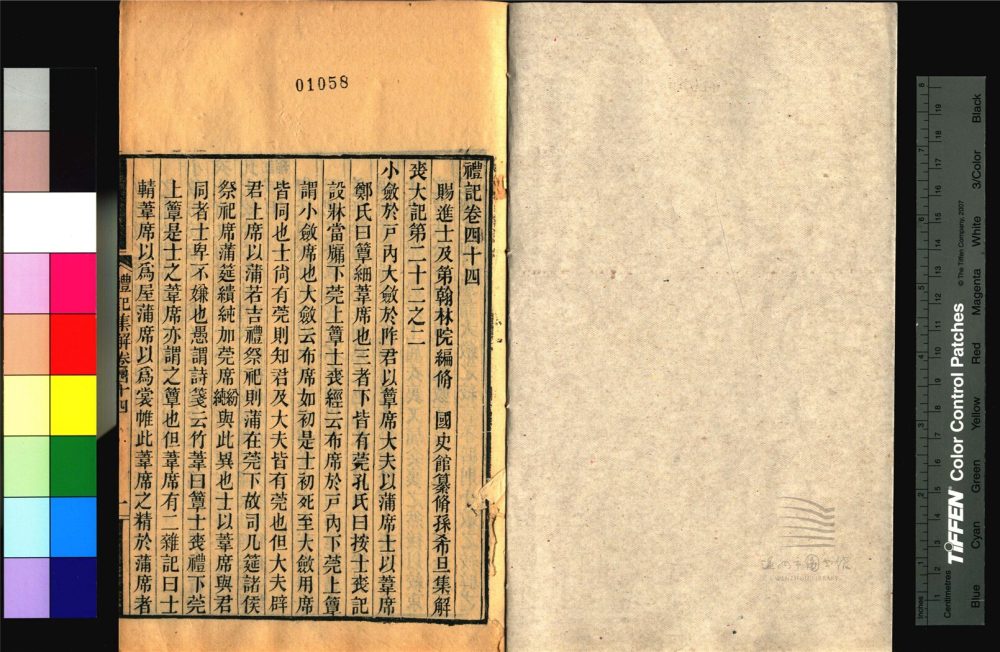 01058
禮記卷四十四
賜進士及第翰林院編脩 國史館纂脩孫希旦集解
喪大記第二十二之二
小斂於戶內大斂於阼君以簟席大夫以蒲席士以葦席
鄭氏曰簟細葦席也三者下皆有莞孔氏曰按士喪記
設牀當牖下莞上簟士喪經云布席於戶內下莞上簟
謂小斂席也大斂云布席如初是士初死至大斂用席
皆同也士尚有莞則知君及大夫皆有莞也但大夫辟
君上席以蒲若吉禮祭祀則蒲在莞下故司几筵諸侯
祭祀席蒲筵繢純加莞席紛純與此異也士以葦席與君
同者士卑不嫌也愚謂詩箋云竹葦曰簟士喪禮下莞
上簟是士之葦席亦謂之簟也但葦席有二雜記曰士
輤葦席以爲屋蒲席以爲裳帷此葦席之精於蒲席者
禮記集解卷四十四
一
Inches
Centimetres
TIFFEN Color Control Patches
© The Tiffen Company, 2007
Blue
Cyan
Green
Yellow
Red
Magenta
White
3/Color
Black